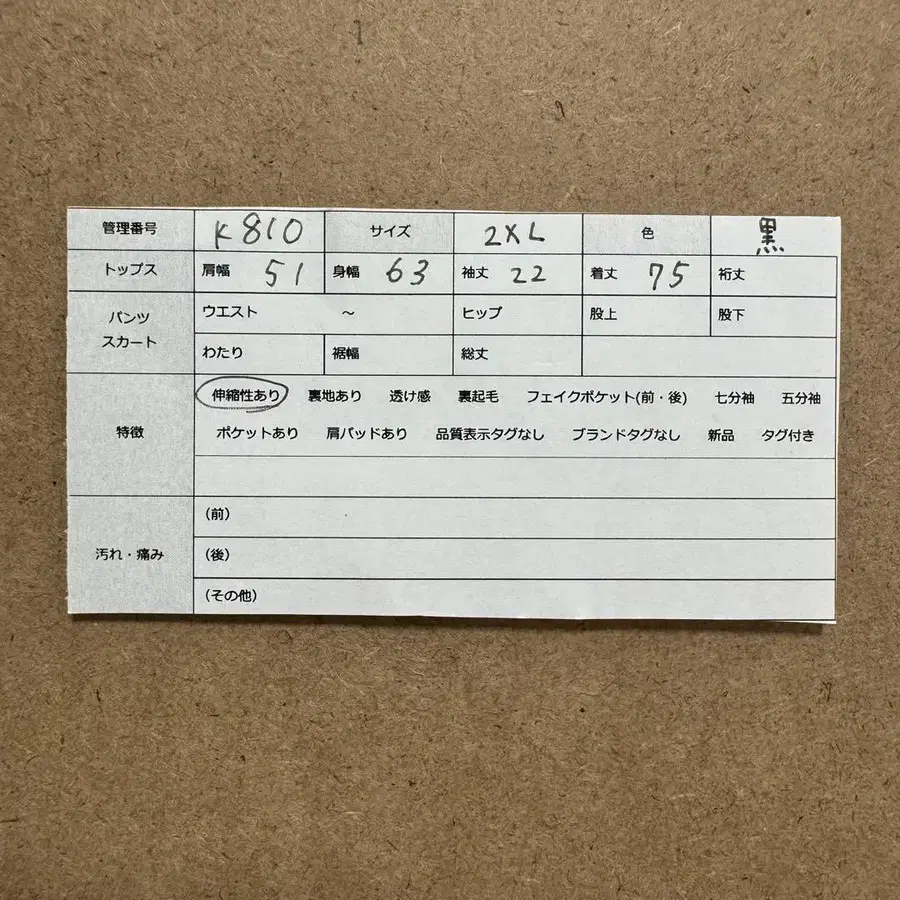 管理番号 K810 サイズ 2XL 色 黒
トップス 肩幅 51 身幅 63 袖丈 22 着丈 75 裄丈
パンツ スカート ウエスト ～ ヒップ 股上 股下
わたり 裾幅 総丈
特徴 伸縮性あり 裏地あり 透け感 裏起毛 フェイクポケット(前・後) 七分袖 五分袖
ポケットあり 肩パッドあり 品質表示タグなし ブランドタグなし 新品 タグ付き
汚れ・痛み (前)
(後)
(その他)